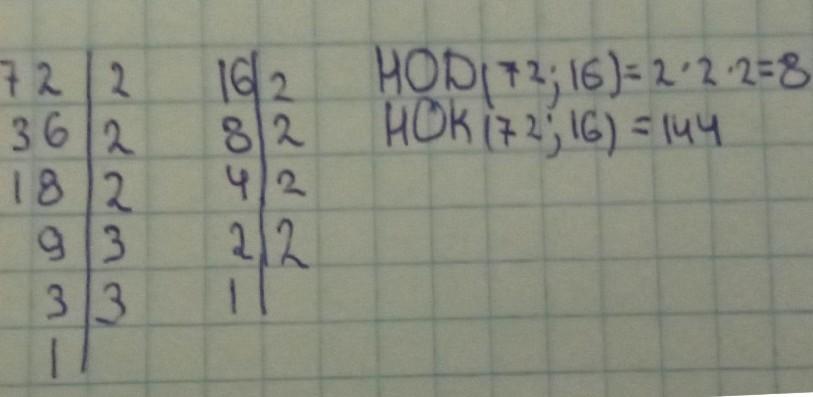 72 | 2 16 | 2 НОД(72; 16) = 2 · 2 · 2 = 8
36 | 2 8 | 2 НОК(72; 16) = 144
18 | 2 4 | 2
9 | 3 2 | 2
3 | 3 1 |
1 |